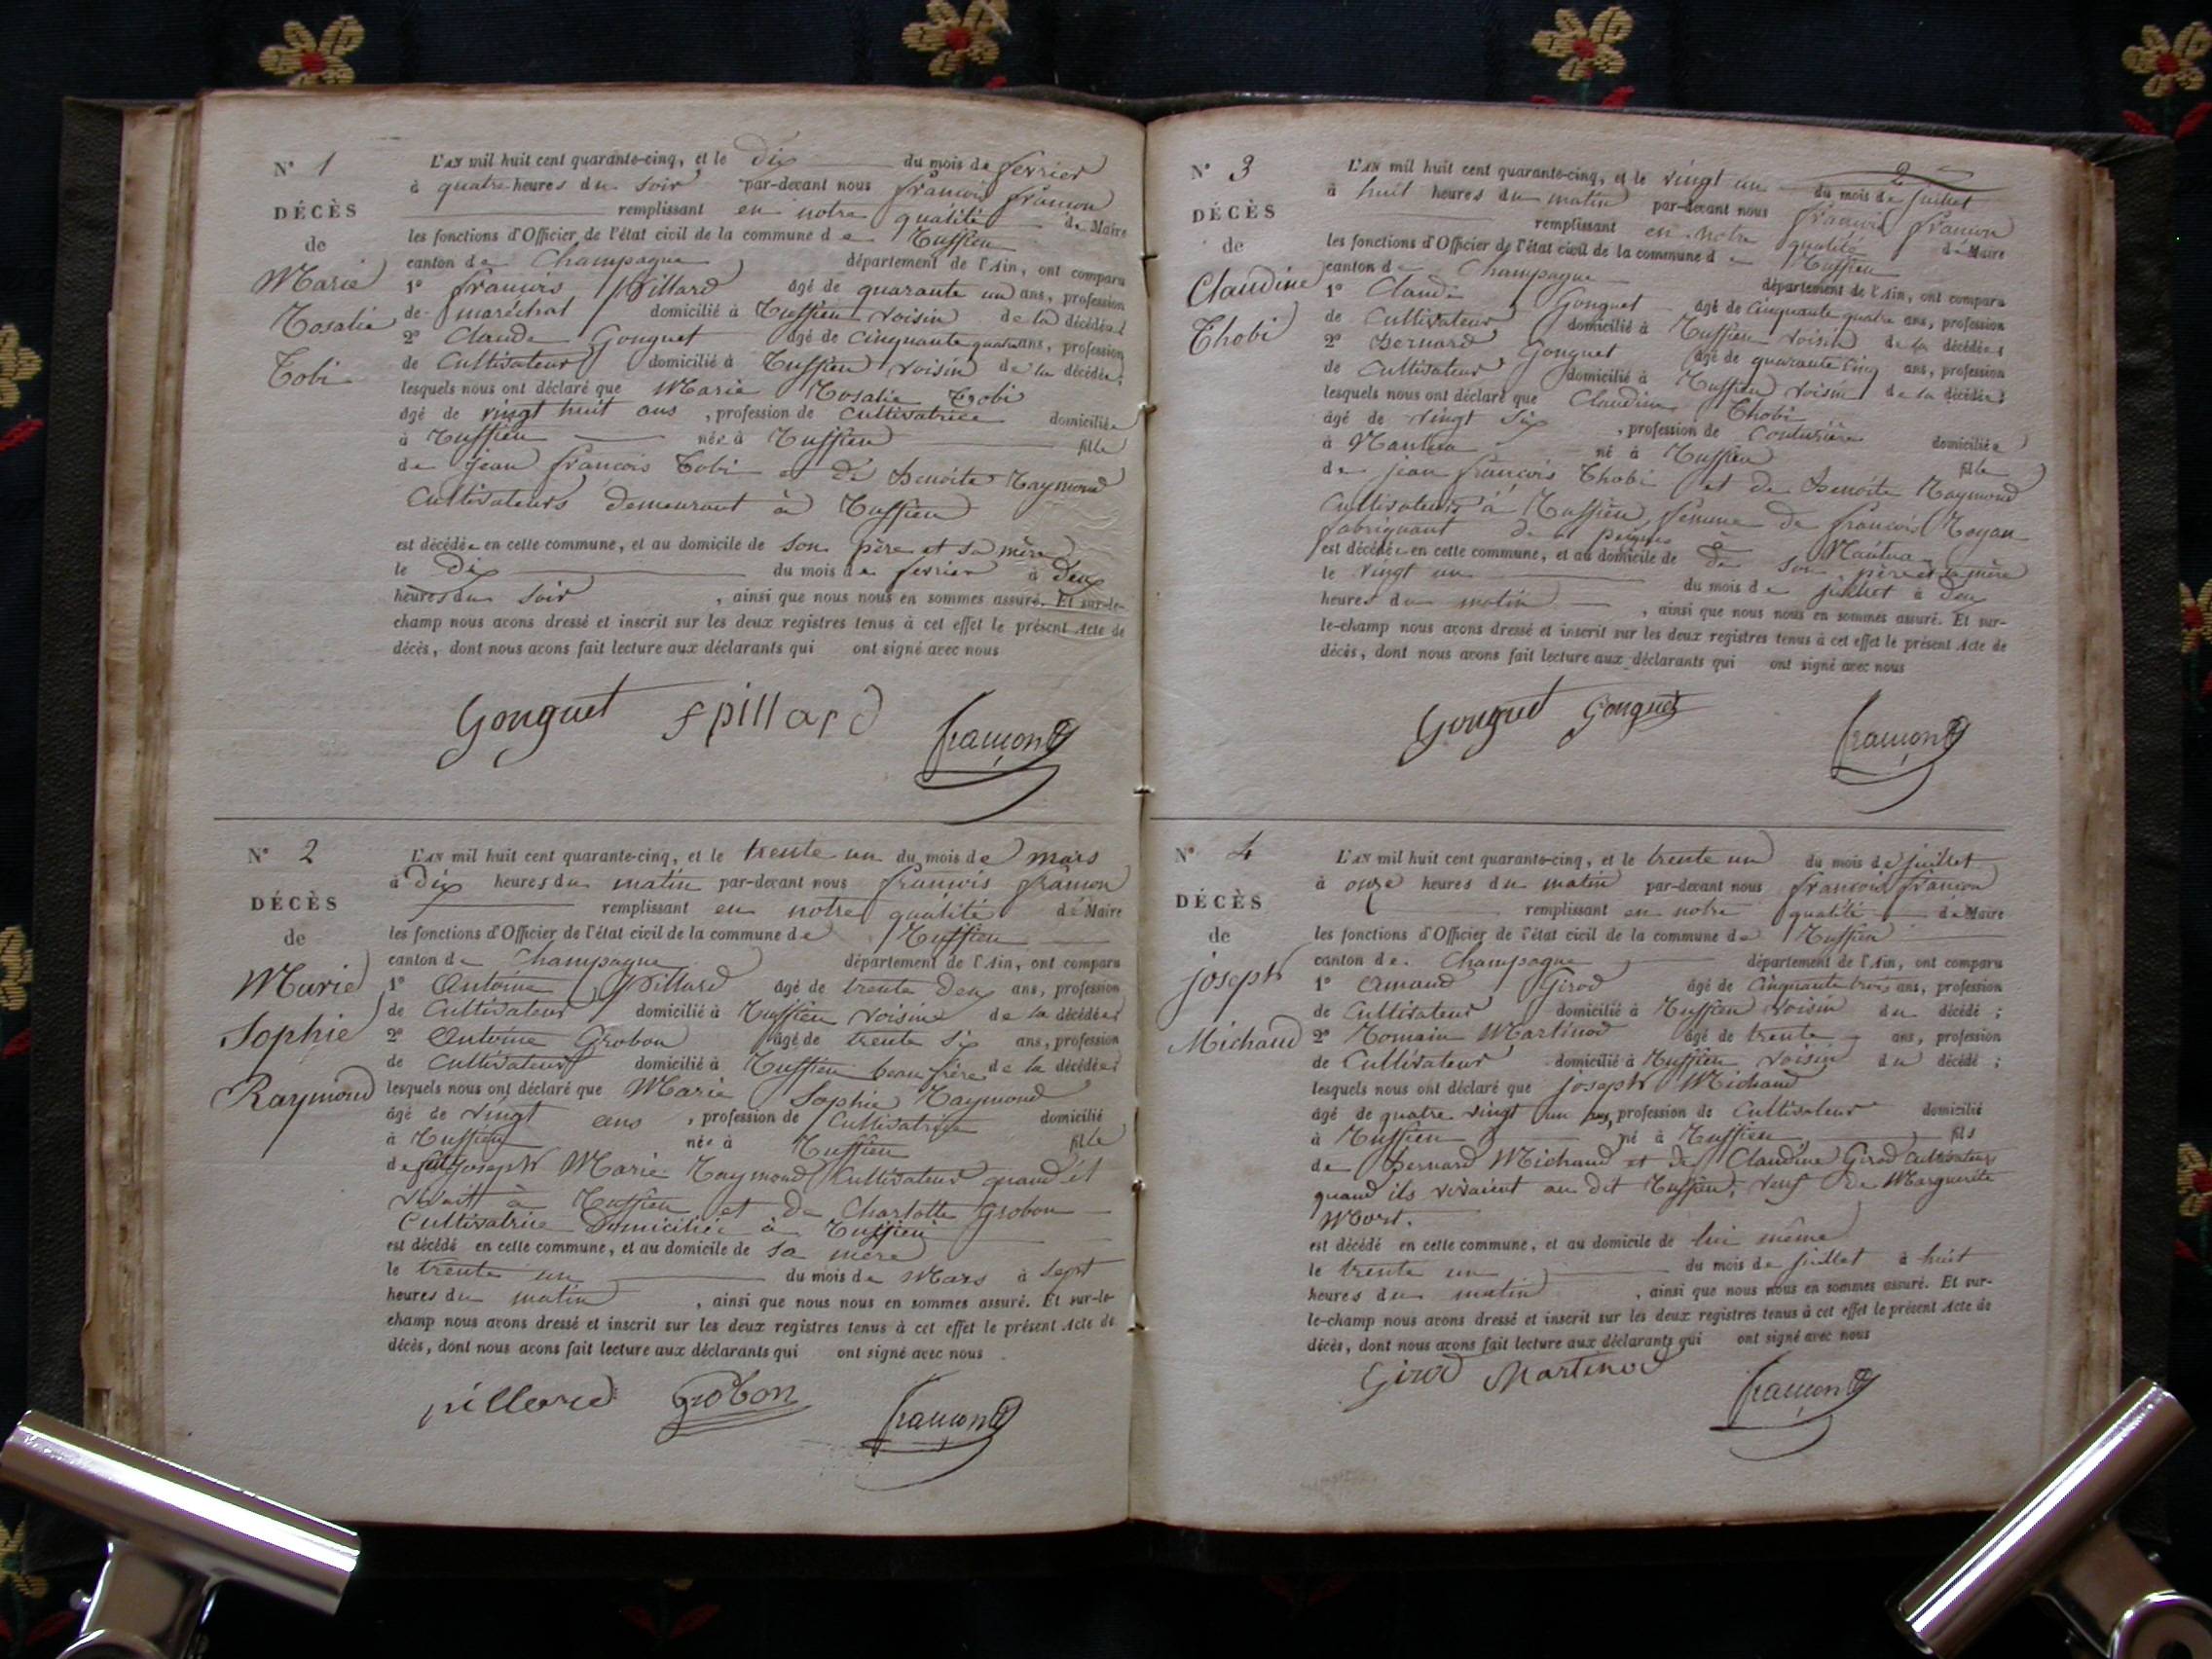 N° 1
DÉCÈS
de
Marie
Rosalie
Tobi
L'AN mil huit cent quarante-cinq, et le dix du mois de fevrier
à quatre heures du soir par-devant nous françois françon
remplissant en notre qualité de Maire
les fonctions d'Officier de l'état civil de la commune de Ruffieu
canton de Champagne département de l'Ain, ont comparu
1° françois Pillard âgé de quarante un ans, profession
de maréchal domicilié à Ruffieu voisin de la décédée;
2° Claude Gonguet âgé de cinquante quatre ans, profession
de Cultivateur domicilié à Ruffieu voisin de la décédée;
lesquels nous ont déclaré que Marie Rosalie Tobi
âgé de vingt huit ans, profession de Cultivatrice domiciliée
à Ruffieu née à Ruffieu fille
de jean françois Tobi et de Benoite Raymond
Cultivateurs demeurant à Ruffieu
est décédée en cette commune, et au domicile de son père et sa mère
le Dix du mois de fevrier à deux
heures du soir, ainsi que nous nous en sommes assuré. Et sur-le-
champ nous avons dressé et inscrit sur les deux registres tenus à cet effet le présent Acte de
décès, dont nous avons fait lecture aux déclarants qui ont signé avec nous
Gonguet fpillard françon
N° 2
DÉCÈS
de
Marie
Sophie
Raymond
L'AN mil huit cent quarante-cinq, et le trente un du mois de mars
à dix heures du matin par-devant nous françois françon
remplissant en notre qualité de Maire
les fonctions d'Officier de l'état civil de la commune de Ruffieu
canton de Champagne département de l'Ain, ont comparu
1° Antoine Pillard âgé de trente deux ans, profession
de Cultivateur domicilié à Ruffieu voisin de la décédée;
2° Antoine Grobon âgé de trente six ans, profession
de Cultivateur domicilié à Ruffieu beau frère de la décédée;
lesquels nous ont déclaré que Marie Sophie Raymond
âgé de vingt ans, profession de Cultivatrice domicilié
à Ruffieu née à Ruffieu fille
de feu joseph Marie Raymond Cultivateur quand il
vivait à Ruffieu et de Charlotte Grobon
Cultivatrice Domiciliée à Ruffieu
est décédé en cette commune, et au domicile de sa mère
le trente un du mois de Mars à sept
heures du matin, ainsi que nous nous en sommes assuré. Et sur-le-
champ nous avons dressé et inscrit sur les deux registres tenus à cet effet le présent Acte de
décès, dont nous avons fait lecture aux déclarants qui ont signé avec nous
pillard Grobon françon
2
N° 3
DÉCÈS
de
Claudine
Thobi
L'AN mil huit cent quarante-cinq, et le vingt un du mois de juillet
à huit heures du matin par-devant nous françois françon
remplissant en notre qualité de Maire
les fonctions d'Officier de l'état civil de la commune de Ruffieu
canton de Champagne département de l'Ain, ont comparu
1° Claude Gonguet âgé de cinquante quatre ans, profession
de Cultivateur domicilié à Ruffieu voisin de la décédée;
2° Bernard Gonguet âgé de quarante cinq ans, profession
de Cultivateur domicilié à Ruffieu voisin de la décédée;
lesquels nous ont déclaré que Claudine Thobi
âgé de vingt six, profession de Couturière domiciliée
à Nantua né à Ruffieu fille
de jean françois Thobi et de Benoite Raymond
Cultivateurs à Ruffieu, femme de françois
fabriquant de peignes à Nantua
est décédée en cette commune, et au domicile de de son père et sa mère
le vingt un du mois de juillet à deux
heures du matin, ainsi que nous nous en sommes assuré. Et sur-
le-champ nous avons dressé et inscrit sur les deux registres tenus à cet effet le présent Acte de
décès, dont nous avons fait lecture aux déclarants qui ont signé avec nous
Gonguet Gonguet françon
N° 4
DÉCÈS
de
joseph
Michaud
L'AN mil huit cent quarante-cinq, et le trente un du mois de juillet
à onze heures du matin par-devant nous françois françon
remplissant en notre qualité de Maire
les fonctions d'Officier de l'état civil de la commune de Ruffieu
canton de Champagne département de l'Ain, ont comparu
1° Amand Girod âgé de cinquante trois ans, profession
de Cultivateur domicilié à Ruffieu voisin du décédé;
2° Romain Martinod âgé de trente ans, profession
de Cultivateur domicilié à Ruffieu voisin du décédé;
lesquels nous ont déclaré que joseph Michaud
âgé de quatre vingt un ans, profession de Cultivateur domicilié
à Ruffieu né à Ruffieu fils
de Bernard Michaud et de Claudine Girod Cultivateurs
quand ils vivaient au dit Ruffieu, veuf de Marguerite
Mort.
est décédé en cette commune, et au domicile de lui même
le trente un du mois de juillet à huit
heures du matin, ainsi que nous nous en sommes assuré. Et sur-
le-champ nous avons dressé et inscrit sur les deux registres tenus à cet effet le présent Acte de
décès, dont nous avons fait lecture aux déclarants qui ont signé avec nous
Girod Martinod françon